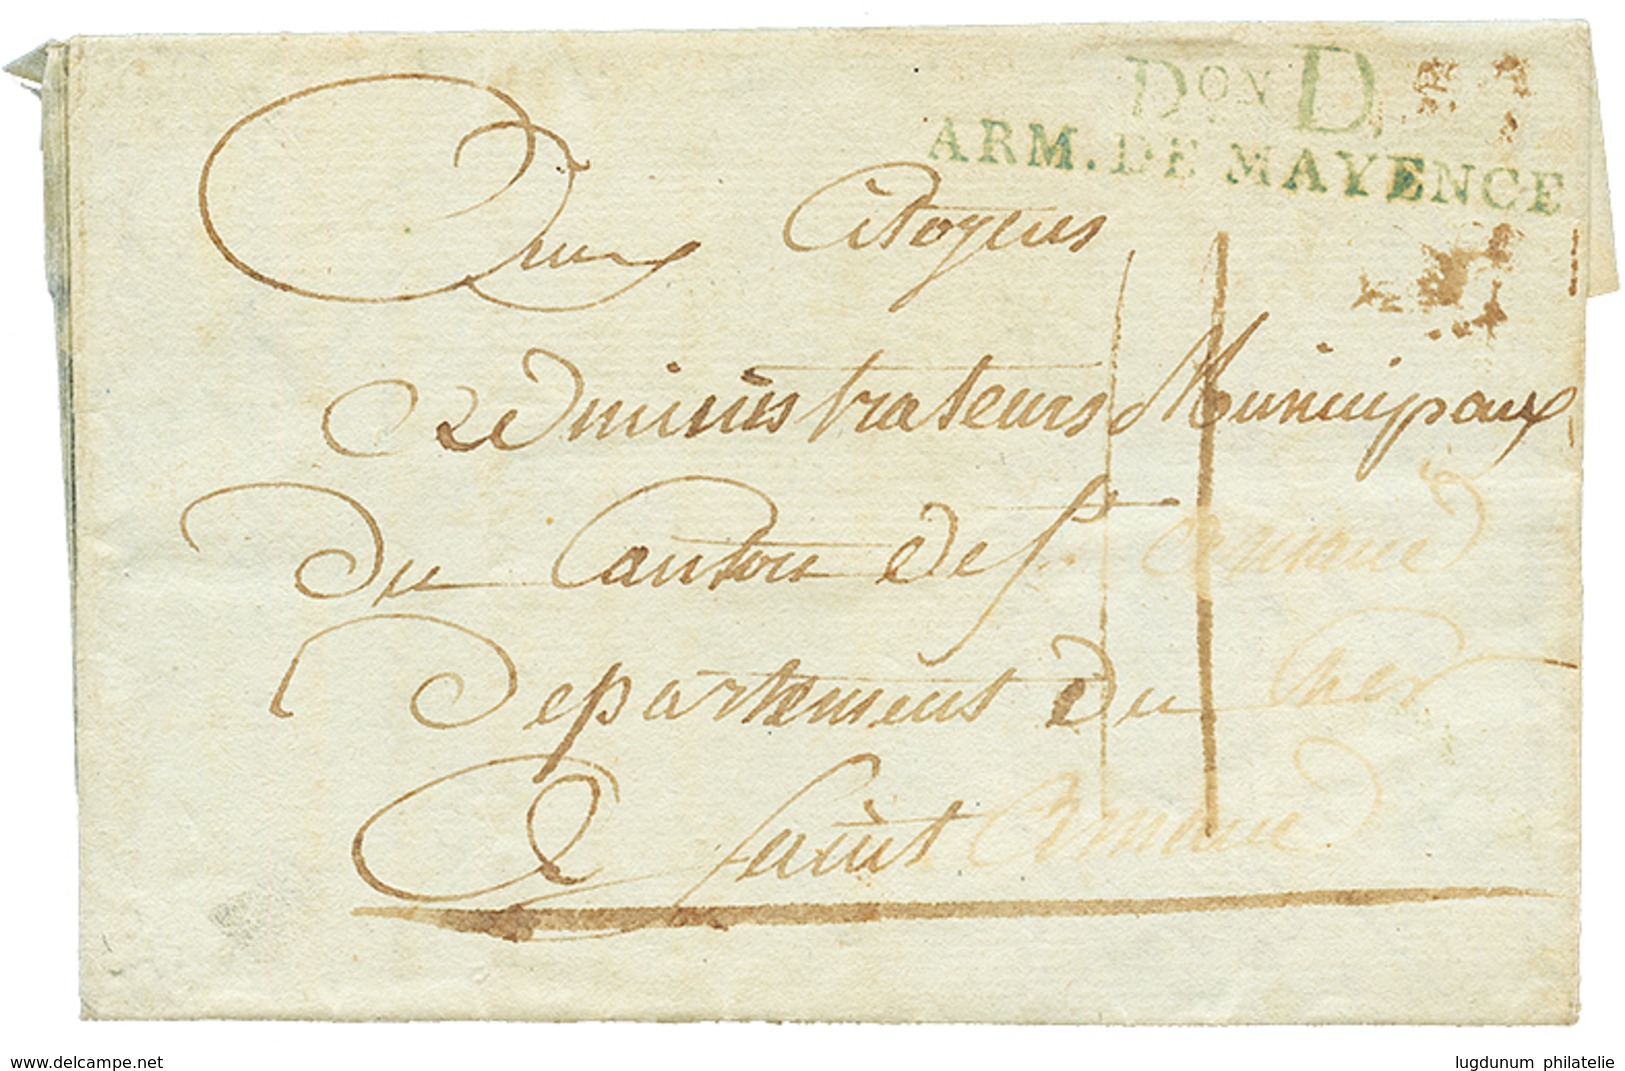 Don D
ARM. DE MAYENCE
Aux Citoyens
Administrateurs Municipaux
Du Canton de St. Amand
Departement du Cher
A Saint Amand
www.delcampe.net
lugdunum philatelie